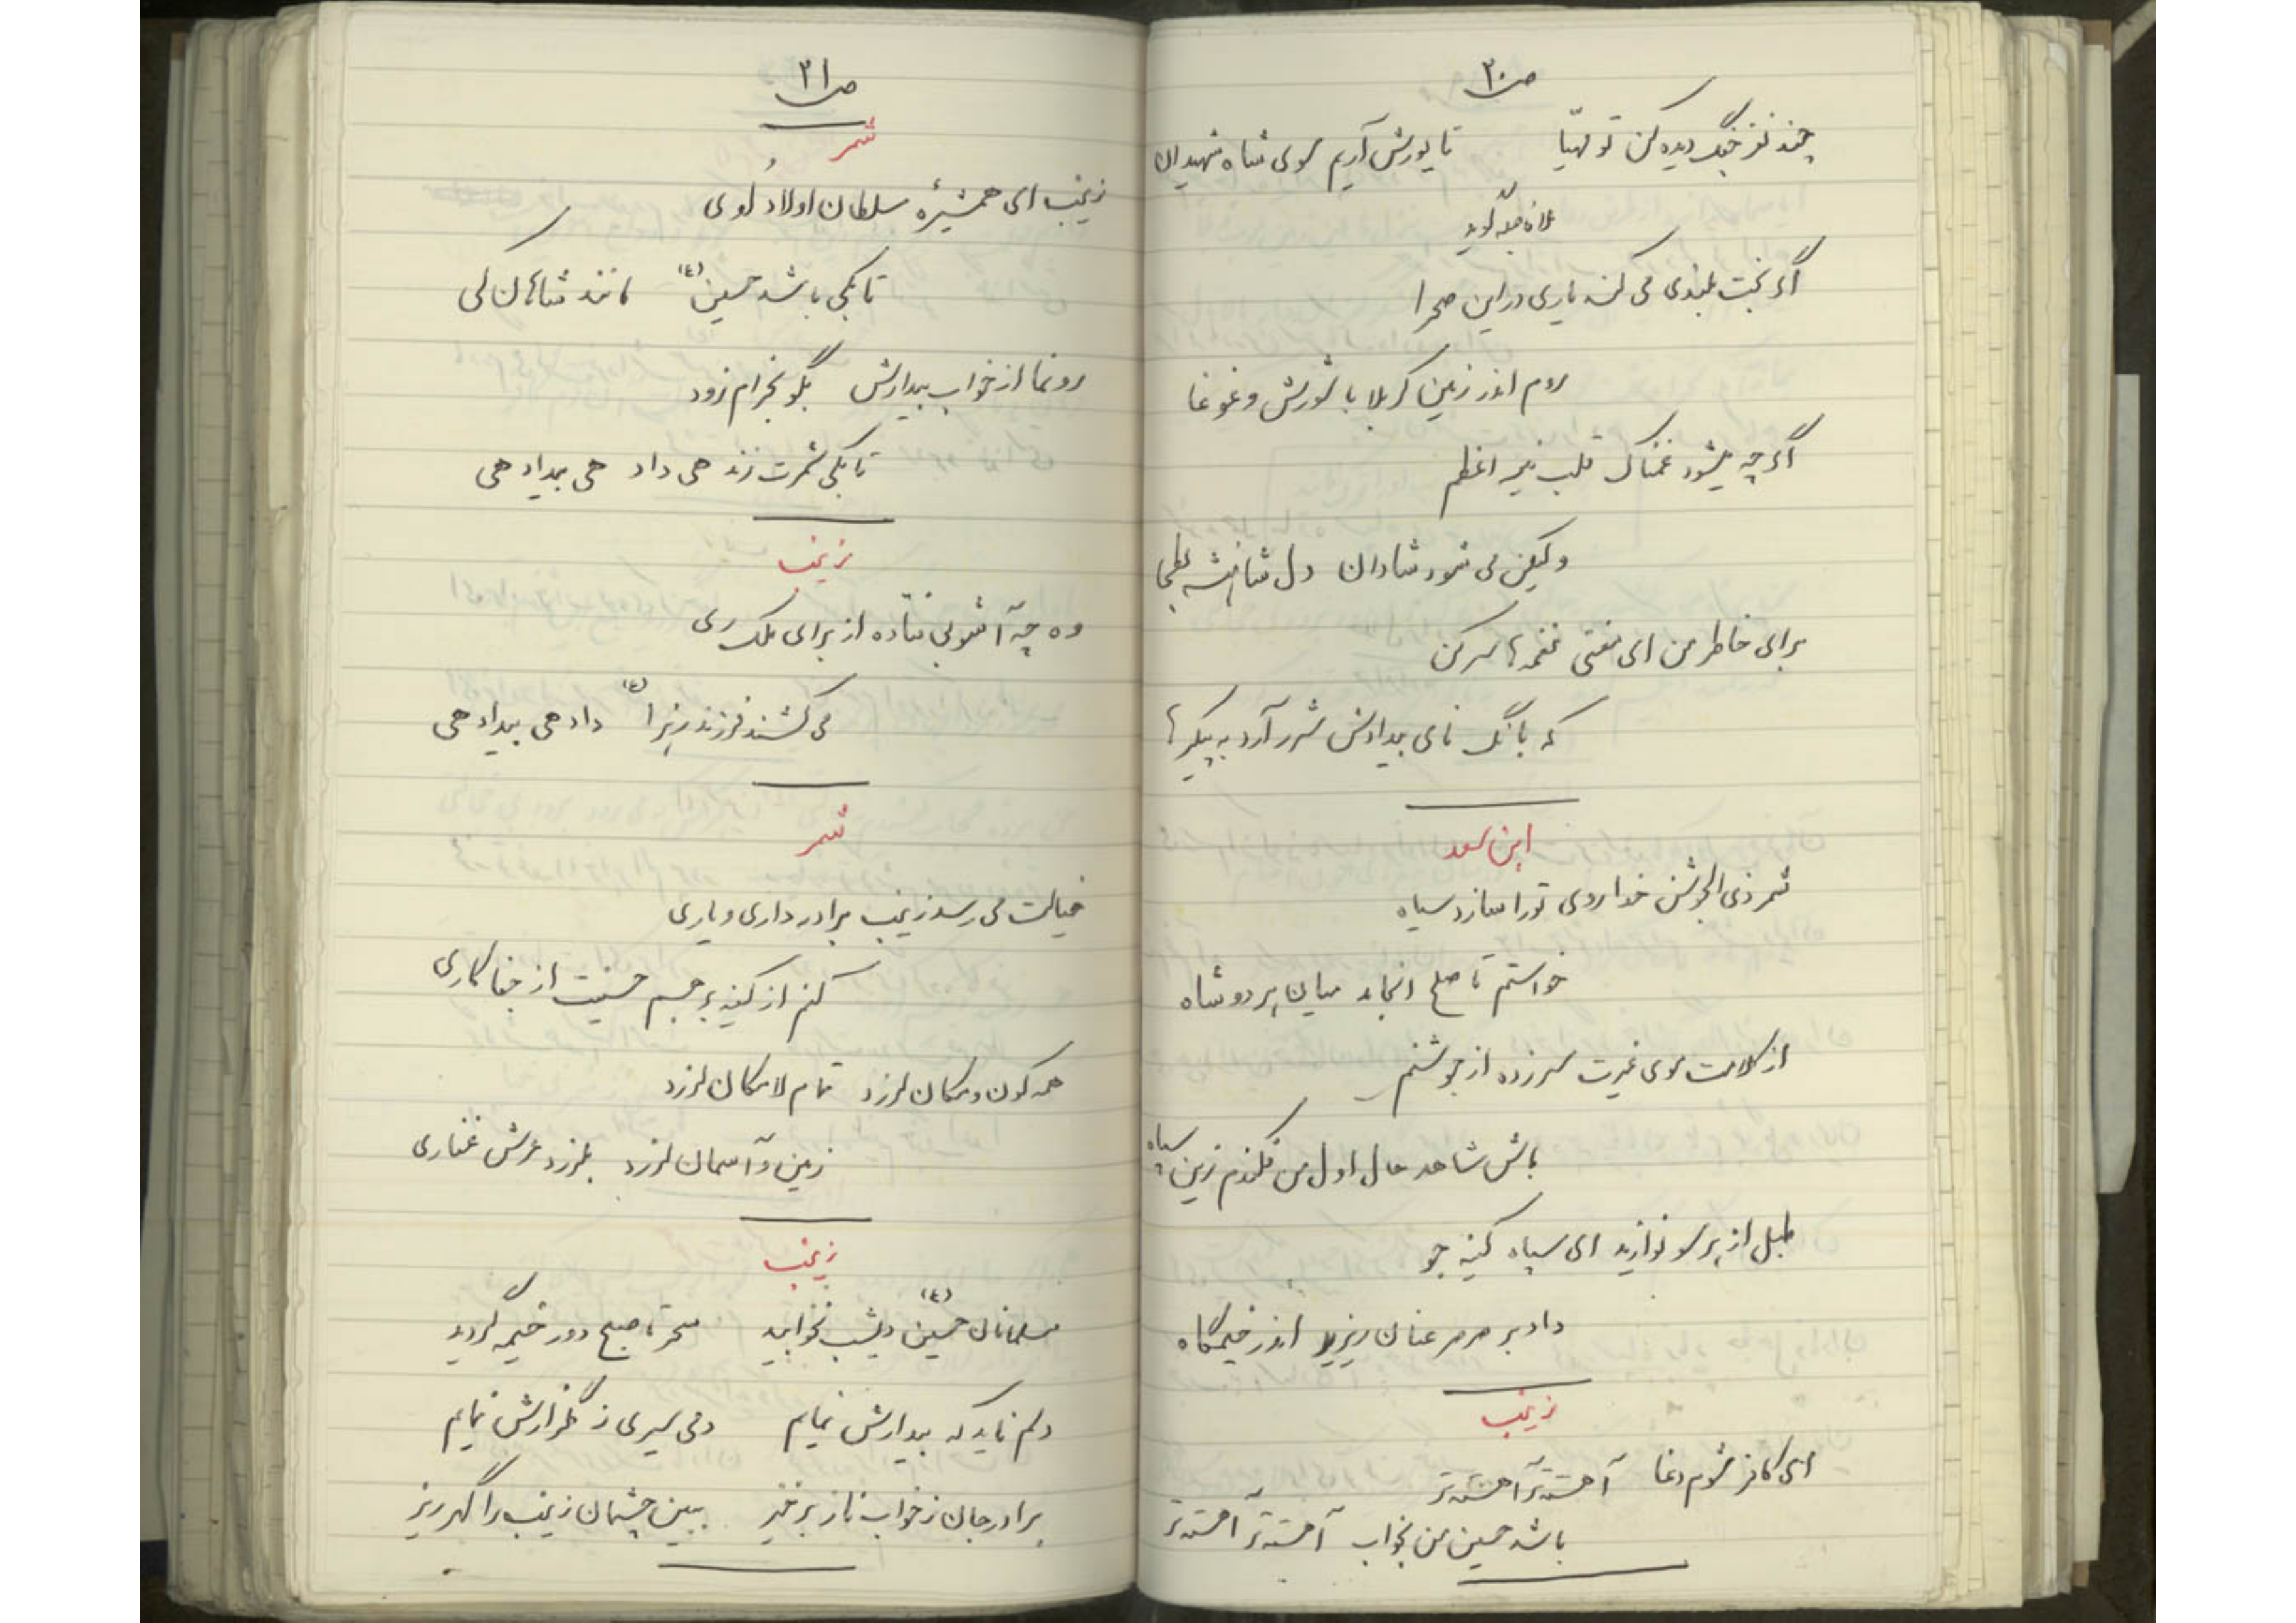 ص۲۰
چند نفر جنگ دیده کن تو مهیّا تا یورش آریم سوی شاه شهیدان
گوید
اگر بخت بلندی می کند یاری در این صحرا
روم اندر زمین کربلا با شورش و غوغا
اگر چه میشود غمناک قلب نیر اعظم
ولیکن می شود شادان دل شاهنشه بطحا
برای خاطر من ای مغنی نغمه ها سر کن
که بانگ نای بیدادش شرر آرد به پیکرها
ابن سعد
شمر ذی الجوشن خدا روی تو را سازد سیاه
خواستم تا صلح انجامد میان هر دو شاه
از کلامت موی غیرت سر زده از جوشنم
باش شاهد حال اول من فکندم زین سپاه
طبل از هر سو نوازید ای سپاه کینه جو
داد بر صرصر عنان ریزید اندر خیمگاه
زینب
ای کافر شوم دغا آهسته تر آهسته تر
باشد حسین من بخواب آهسته تر آهسته تر
ص۲۱
شمر
زینب ای همشیرهٔ سلطان اولاد لوی
تا بکی باشد حسین (ع) مانند شاهان کی
رو نما از خواب بیدارش بگو بخرام زود
تا بکی شمرت زند هی داد هی بیداد هی
زینب
وه چه آشوبی فتاده از برای ملک ری
می کشند فرزند زهرا (ع) داد هی بیداد هی
شمر
خیالت می رسد زینب برادر داری و یاری
کنم از کینه بر جسم حسینت از جفا کاری
همه کون و مکان لرزد تمام لامکان لرزد
زمین و آسمان لرزد بلرزد عرش غفاری
زینب
مسلمانان حسین (ع) دیشب نخوابید سحر تا صبح دور خیمه گردید
دلم ناید که بیدارش نمایم دمی سیری ز گلزارش نمایم
برادر جان ز خواب ناز برخیز ببین چشمان زینب را گهر ریز